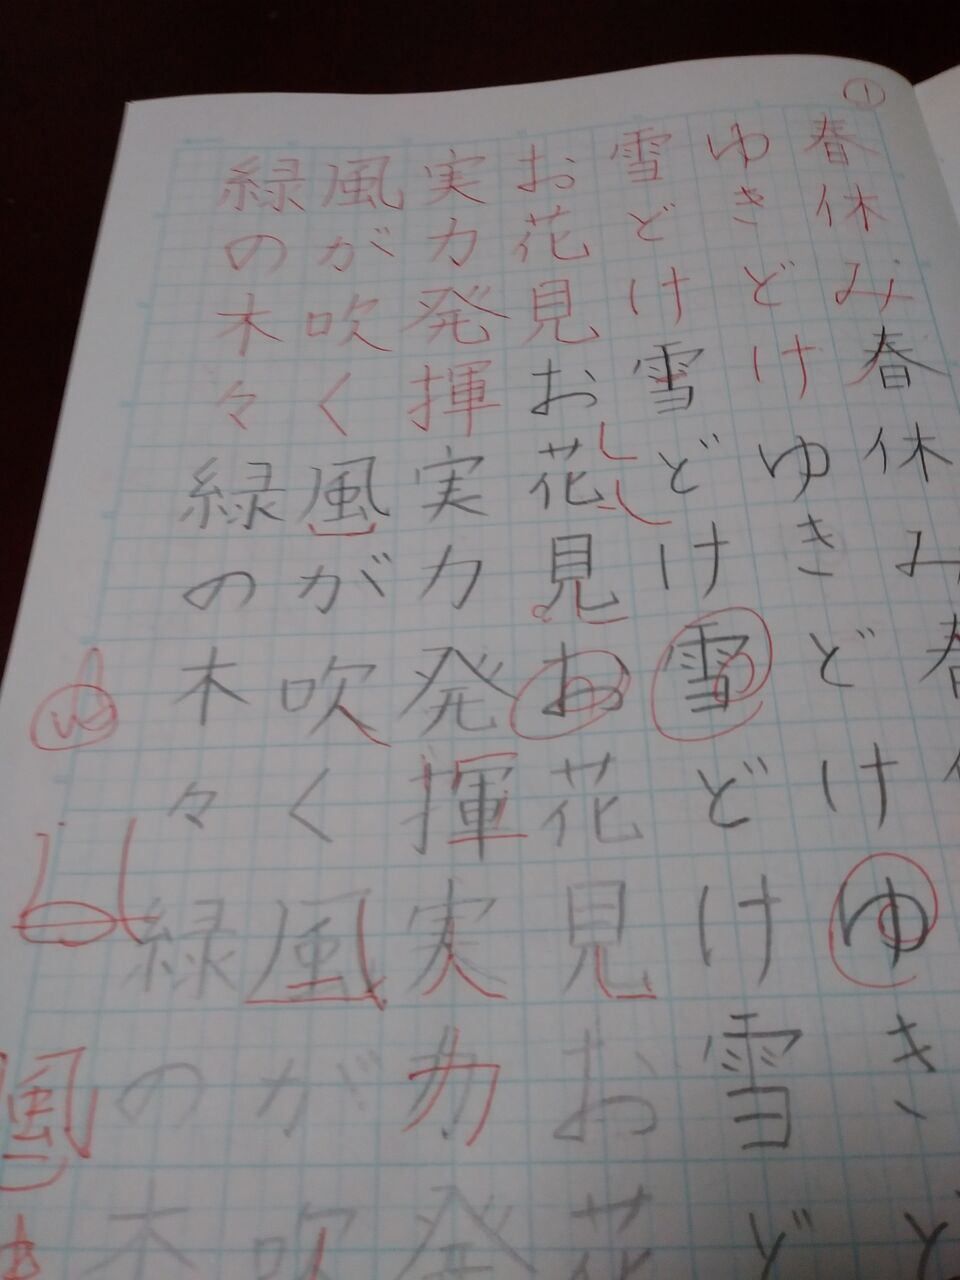 ①
春休み春休み春
ゆきどけゆきどけゆきど
雪どけ雪どけ雪どけ雪ど
お花見お花見お花見お花
実力発揮実力発揮実力発
風が吹く風が吹く風が吹
緑の木々緑の木々緑の木
ゆ
風